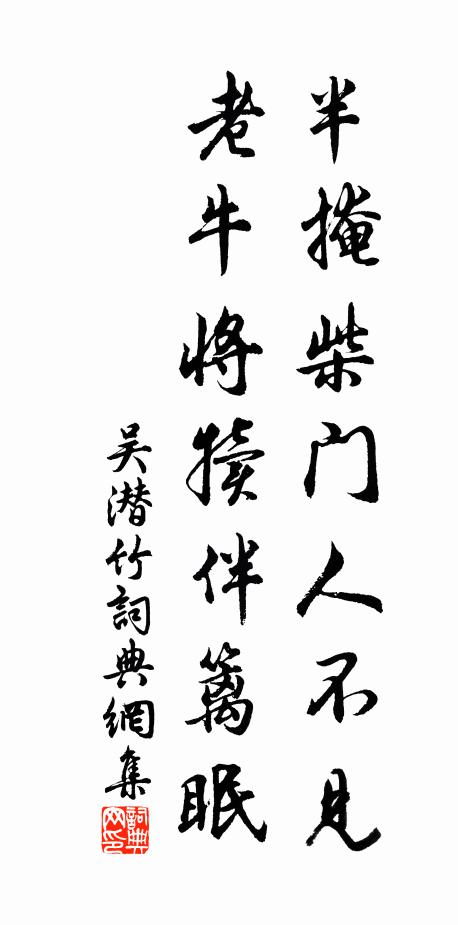 半掩柴门人不见
老牛将犊伴篱眠
吴潜竹詞典網集
詞典
网印